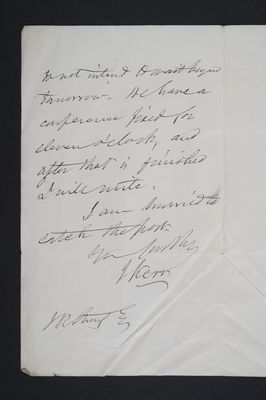 do not intend to wait beyond
tomorrow. We have a
conference fixed for
eleven o'clock, and
after that is finished
I will write.
I am hurried to
catch the post.